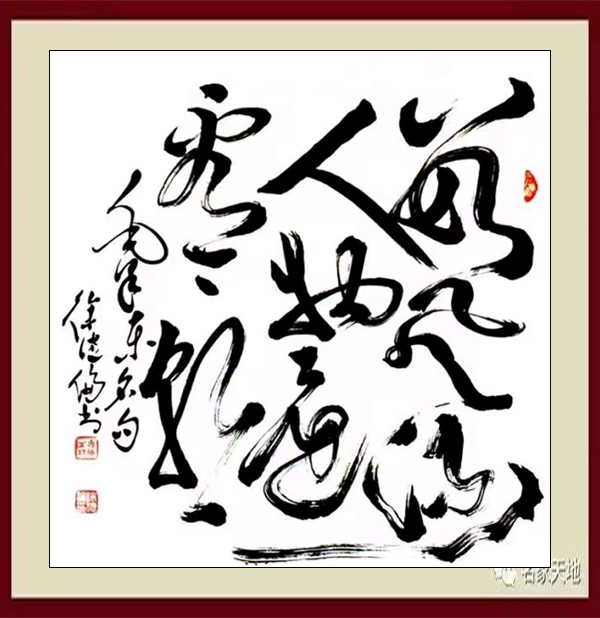 数风流
人物還
看今朝
毛泽东名句
徐
书
名家天地